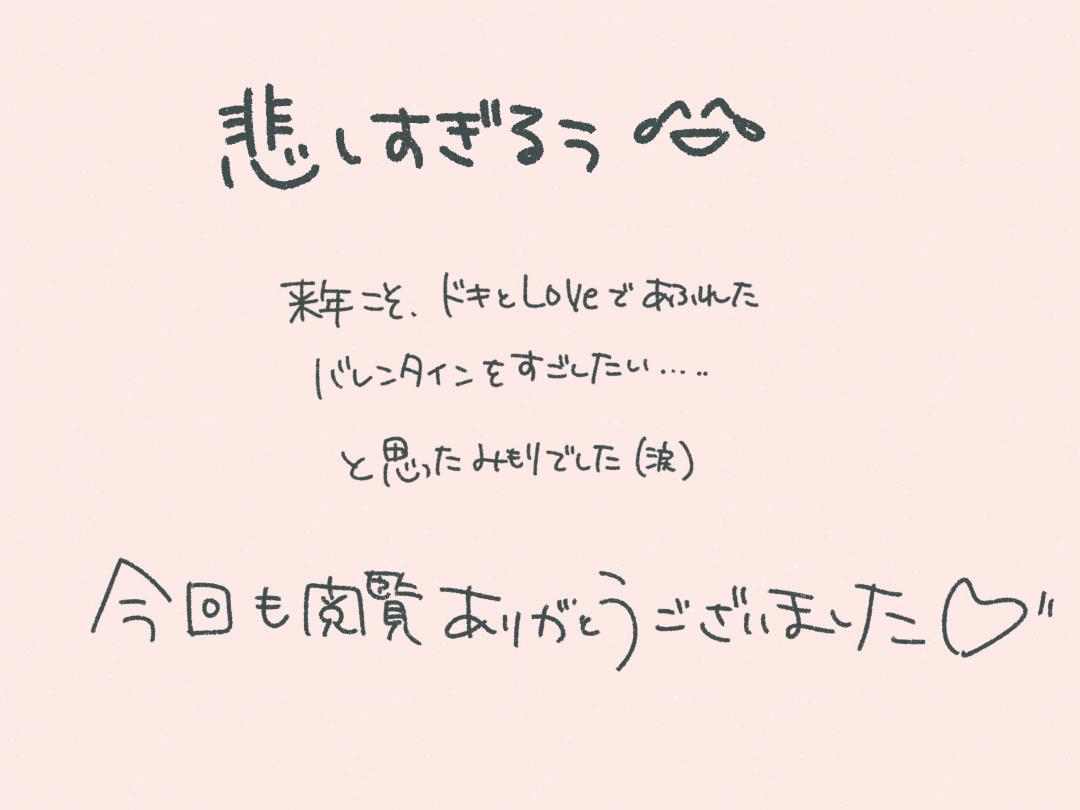 悲しすぎるぅ
来年こそ、ドキとLoveであふれた
バレンタインをすごしたい.....
と思ったみもりでした(涙)
今回も閲覧ありがとうございました♡"